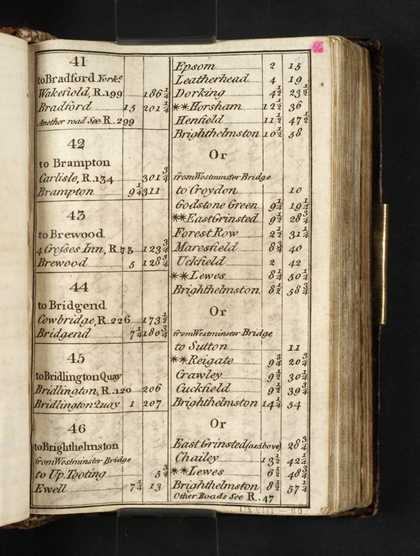 41
to Bradford Yorks.
Wakefield, R.199 186¼
Bradford 15 201¼
Another road See R. 299
42
to Brampton
Carlisle, R.134 301¾
Brampton 9¼ 311
43
to Brewood
4 Crosses Inn, R.73 123¾
Brewood 5 128¾
44
to Bridgend
Cowbridge, R.226 173½
Bridgend 7¼ 180¾
45
to Bridlington Quay
Bridlington, R.120 206
Bridlington Quay 1 207
46
to Brighthelmston
from Westminster Bridge
to Up. Tooting 5¾
Ewell 7¼ 13
Epsom 2 15
Leatherhead 4 19
Dorking 4½ 23½
**Horsham 12½ 36
Henfield 11½ 47½
Brighthelmston 10½ 58
Or
from Westminster Bridge
to Croydon 10
Godstone Green 9¼ 19¼
**East Grinsted 9½ 28¾
Forest Row 2½ 31¼
Maresfield 8¾ 40
Uckfield 2 42
**Lewes 8¼ 50¼
Brighthelmston 8½ 58¾
Or
from Westminster Bridge
to Sutton 11
**Reigate 9¾ 20¾
Crawley 9½ 30¼
Cuckfield 9½ 39¾
Brighthelmston 14¼ 54
Or
East Grinsted (as above) 28¾
Chailey 13½ 42¼
**Lewes 6½ 48¾
Brighthelmston 8½ 57¼
Other Roads See R. 47